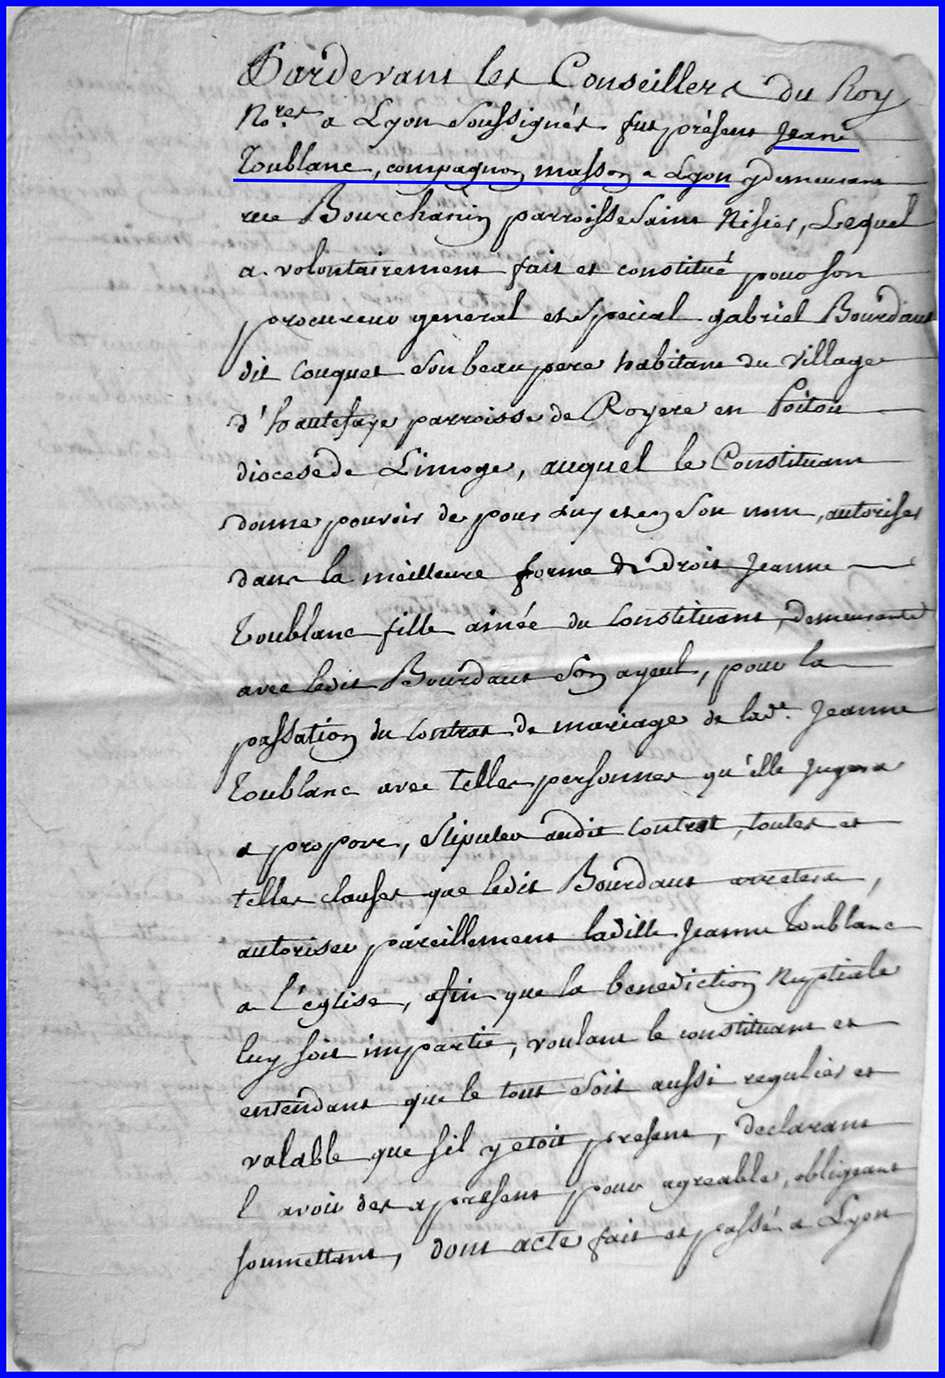 Pardevant les Conseillers du Roy
No.res a Lyon soussignés fut présent Jean
Toublanc, compagnon masson a Lyon y demeurant
rue Bourchanin parroisse Saint Nisier, Lequel
a volontairement fait et constitué pour son
procureur general et special gabriel Bourdaut
dit Couquet son beau pere habitant du village
d'hautefaye parroisse de Royere en Poitou
diocese de Limoge, auquel le Constituant
donne pouvoir de pour luy et en son nom, autoriser
dans la meilleure forme de droit Jeanne
Toublanc fille ainée du Constituant, demeurante
avec ledit Bourdaut son ayeul, pour la
passation du Contrat de mariage de lad.e Jeanne
Toublanc avec telles personnes qu'elle jugera
a propore, stipuler audit Contrat, toutes et
telles clauses que ledit Bourdaut arretera,
autoriser pareillement ladille Jeanne Toublanc
a l'église, afin que la benediction Nuptiale
luy soit impartie, voulant le constituant et
entendant que le tout soit aussi regulier et
valable que sil y etoit present, declarant
l avoir des apresent pour agreable, obligeant
soumettant, dont acte fait et passé a Lyon